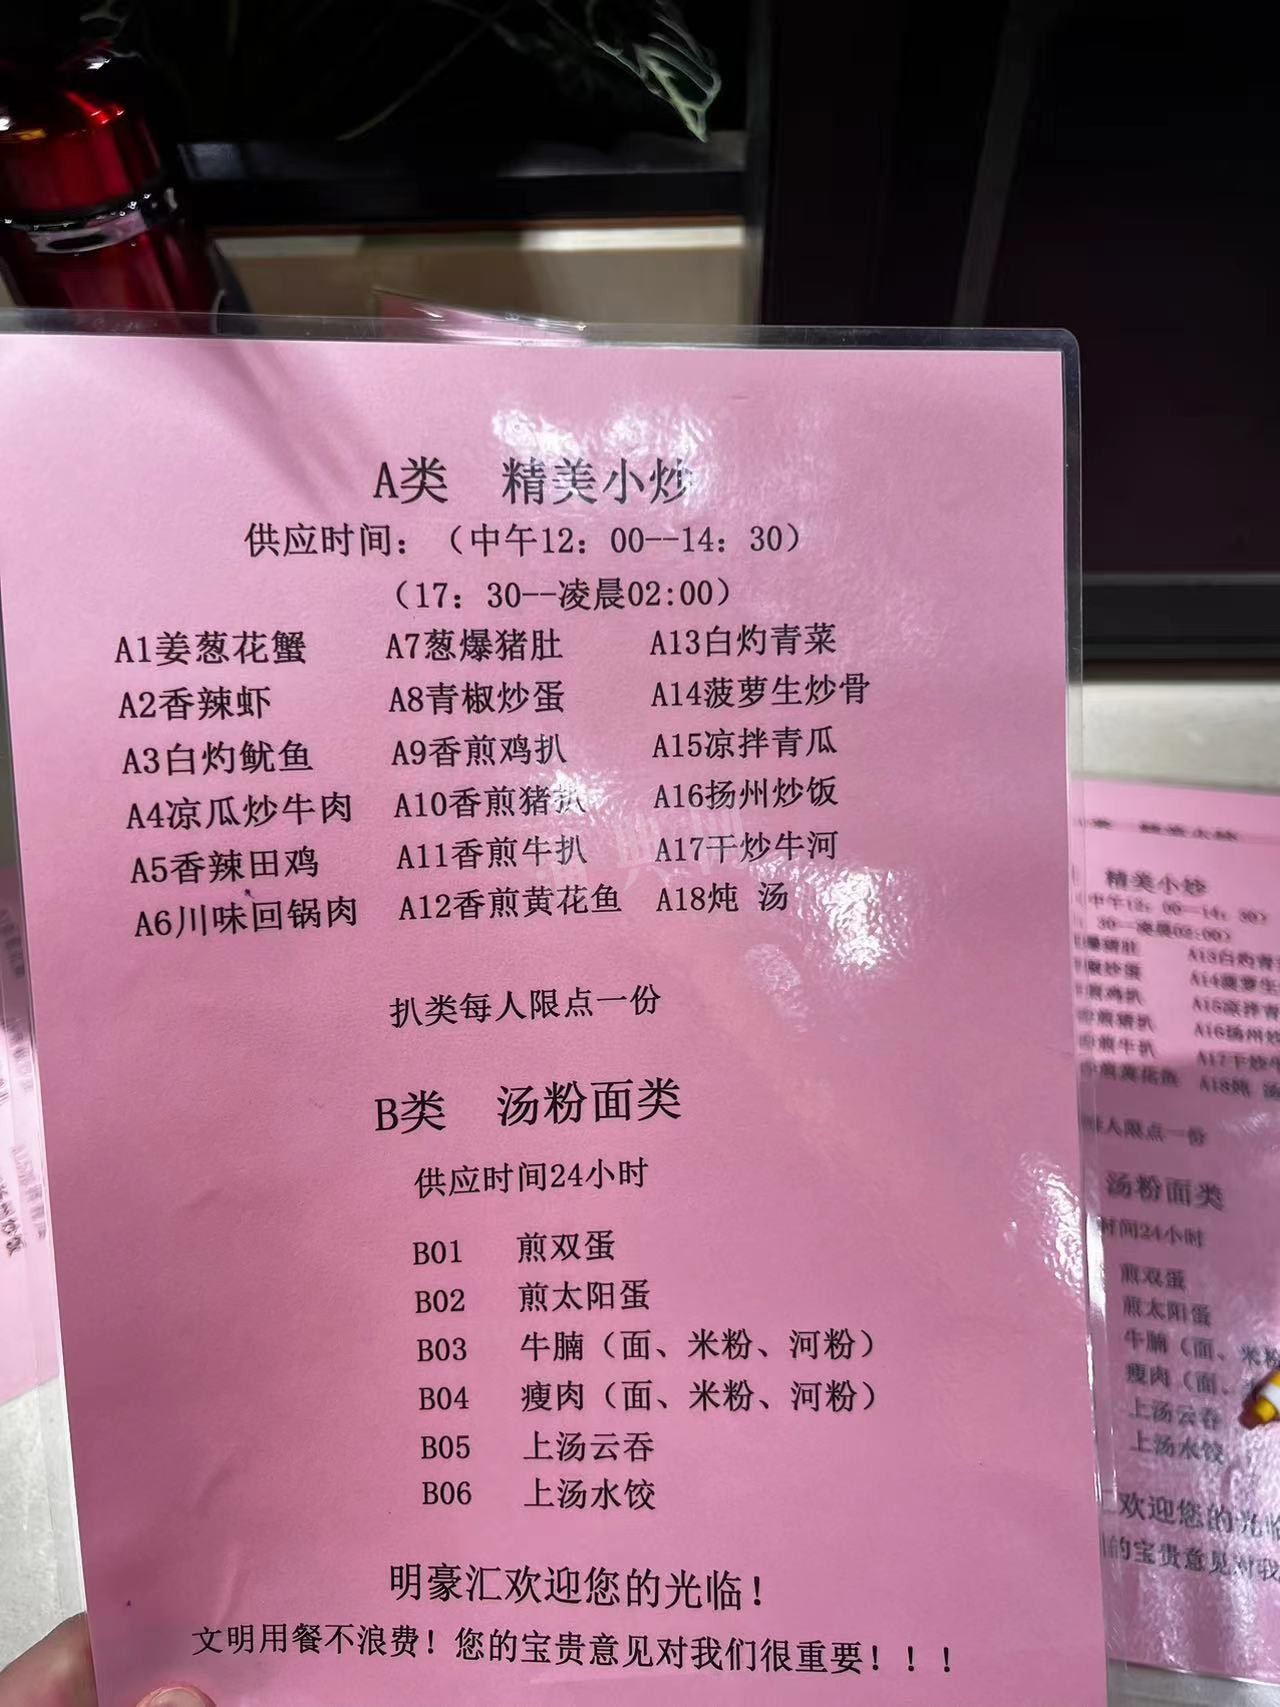 A类 精美小炒
供应时间：（中午12：00--14：30）
（17：30--凌晨02:00）
A1姜葱花蟹 A7葱爆猪肚 A13白灼青菜
A2香辣虾 A8青椒炒蛋 A14菠萝生炒骨
A3白灼鱿鱼 A9香煎鸡扒 A15凉拌青瓜
A4凉瓜炒牛肉 A10香煎猪扒 A16扬州炒饭
A5香辣田鸡 A11香煎牛扒 A17干炒牛河
A6川味回锅肉 A12香煎黄花鱼 A18炖 汤
扒类每人限点一份
B类 汤粉面类
供应时间24小时
B01 煎双蛋
B02 煎太阳蛋
B03 牛腩（面、米粉、河粉）
B04 瘦肉（面、米粉、河粉）
B05 上汤云吞
B06 上汤水饺
明豪汇欢迎您的光临！
文明用餐不浪费！您的宝贵意见对我们很重要！！！
精美小炒
中午12：00--14：30）
：30--凌晨02:00）
爆猪肚 A13白灼青
椒炒蛋 A14菠萝生
煎鸡扒 A15凉拌青
香煎猪扒 A16扬州炒
香煎牛扒 A17干炒牛
香煎黄花鱼 A18炖 汤
每人限点一份
汤粉面类
时间24小时
煎双蛋
煎太阳蛋
牛腩（面、米粉
瘦肉（面、
上汤云吞
上汤水饺
欢迎您的光临
的宝贵意见对我